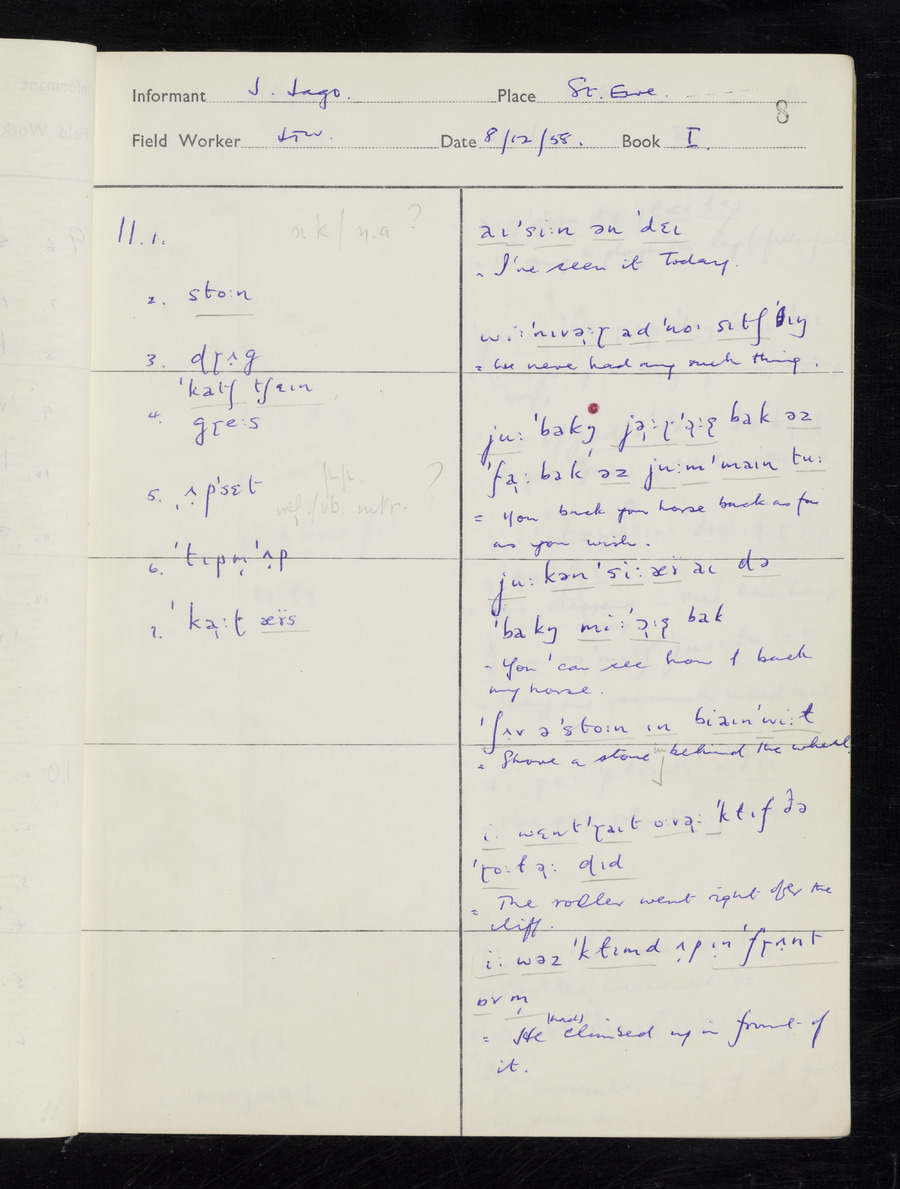 Informant J. Jago. Place St. Ewe.
8
Field Worker Date 8/12/58. Book I.
11.1. nk / n.a ?
2. stoːn
3. dɽʌg
4. ˈkatʃ tʃɛɪn
gɽeːs
5. ʌpˈsɛt pp. inf./vb. intr. ?
6. ˈtɪpm̩ ˈʌp
7. ˈkaːt æʏs
aɪ ˈsiːn ən ˈdɛɪ
= I've seen it today.
wiː ˈnɪvəːɽ ad ˈnoɪ sɪtʃ ˈɪŋ
= We never had any such thing.
juː ˈbakŋ jəːɽ bak əz
ˈfaː bak əz juːm ˈmaɪn tuː
= You back your horse back as far
as you wish.
juː kən ˈsiː æʏ aɪ də
ˈbakŋ miː bak
= You can see how I back
my horse.
ˈʃʌv ə ˈstoːn ɪn biaɪn ˈwiːt
= Shove a stone in behind the wheel
iː wɛnt ˈɽaɪt oːvəː ˈktɪf ðə
ˈɽoːtəː dɪd
= The roller went right over the
cliff.
iː wəz ˈktɪmd ʌp ɪn ˈfɽʌnt
ɒv m̩
= He (had) climbed up in front of
it.